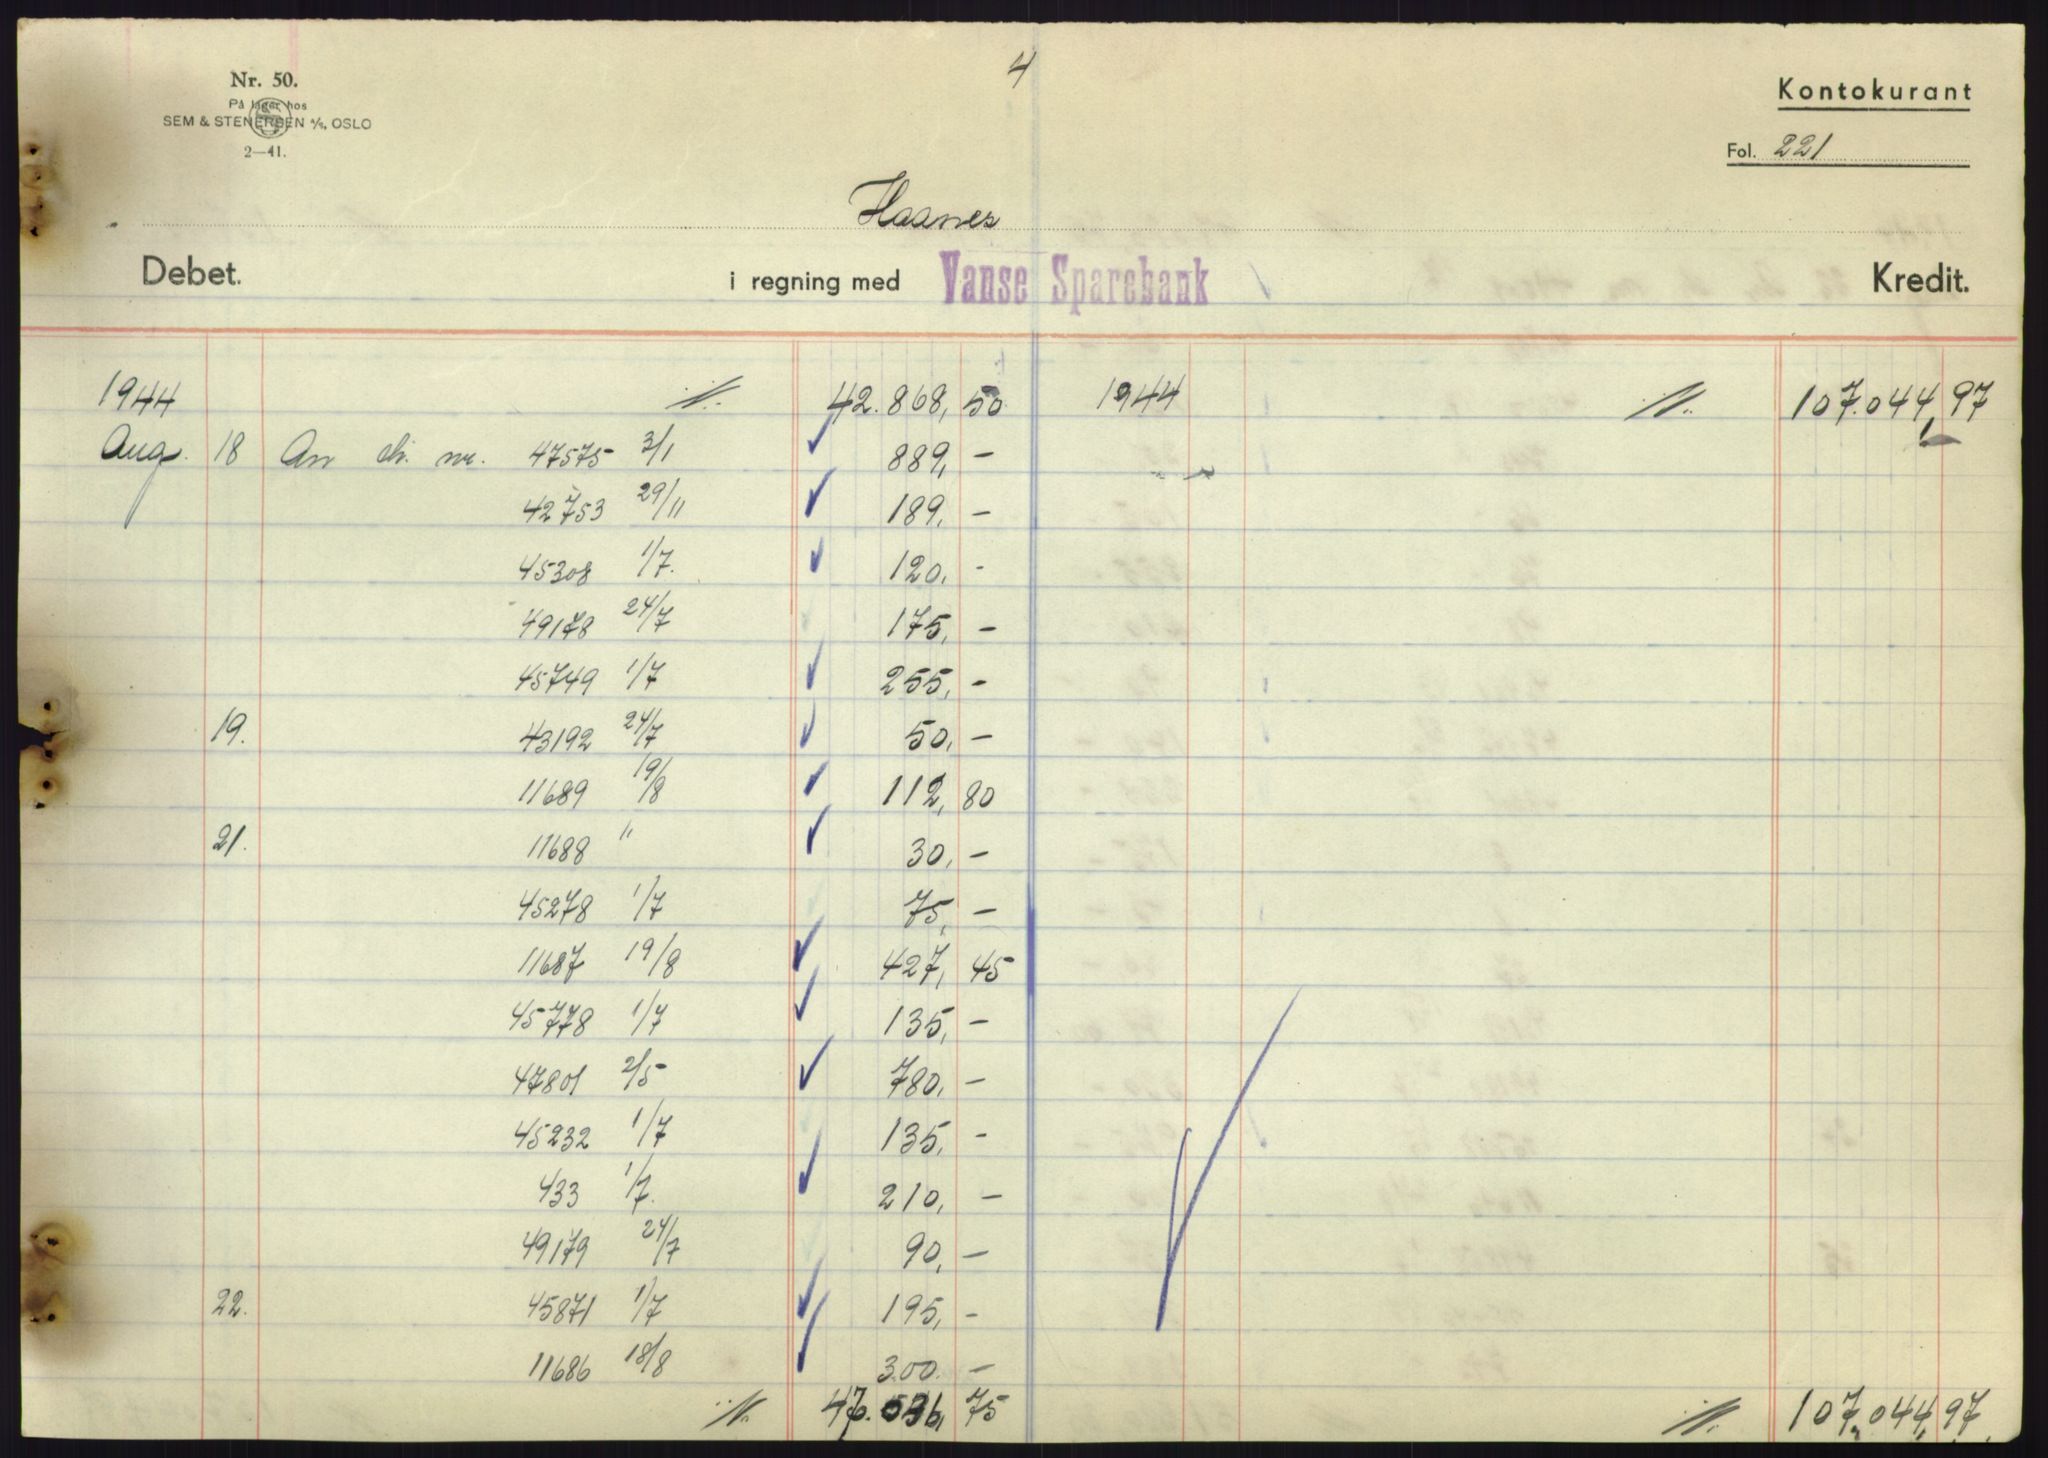 4
Nr. 50.
På lager hos
SEM & STENERSEN A/S, OSLO
2—41.
Kontokurant
Fol. 221
Haanes
Debet. i regning med Vanse Sparebank Kredit.
1944 42.868, 50 1944 107.044, 97
Aug. 18 An ch. nr. 47575 3/1 889, —
42753 29/11 189, —
45308 1/7. 120, -
49178 24/7 175, —
45749 1/7 255, —
19. 43192 24/7 50, —
11689 19/8 112, 80
21. 11688 " 30, —
45278 1/7 75, —
11687 19/8 427, 45
45778 1/7 135, —
47801 2/5 780, —
45232 1/7 135, -
433 1/7. 210, —
49179 24/7 90, —
22. 45871 1/7 195, -
11686 18/8 300. —
47.036, 75 107.044, 97